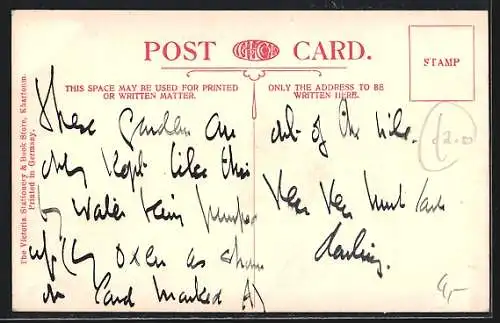 POST CARD.
THIS SPACE MAY BE USED FOR PRINTED
OR WRITTEN MATTER.
ONLY THE ADDRESS TO BE
WRITTEN HERE.
STAMP
The Victoria Stationery & Book Store, Khartoum.
Printed in Germany.
These Gardens are
only kept like this
by water being pumped
up by Oxen as shown
on Card marked A)
out of the Nile.
Very Very much love
darling.
12.0
4,-